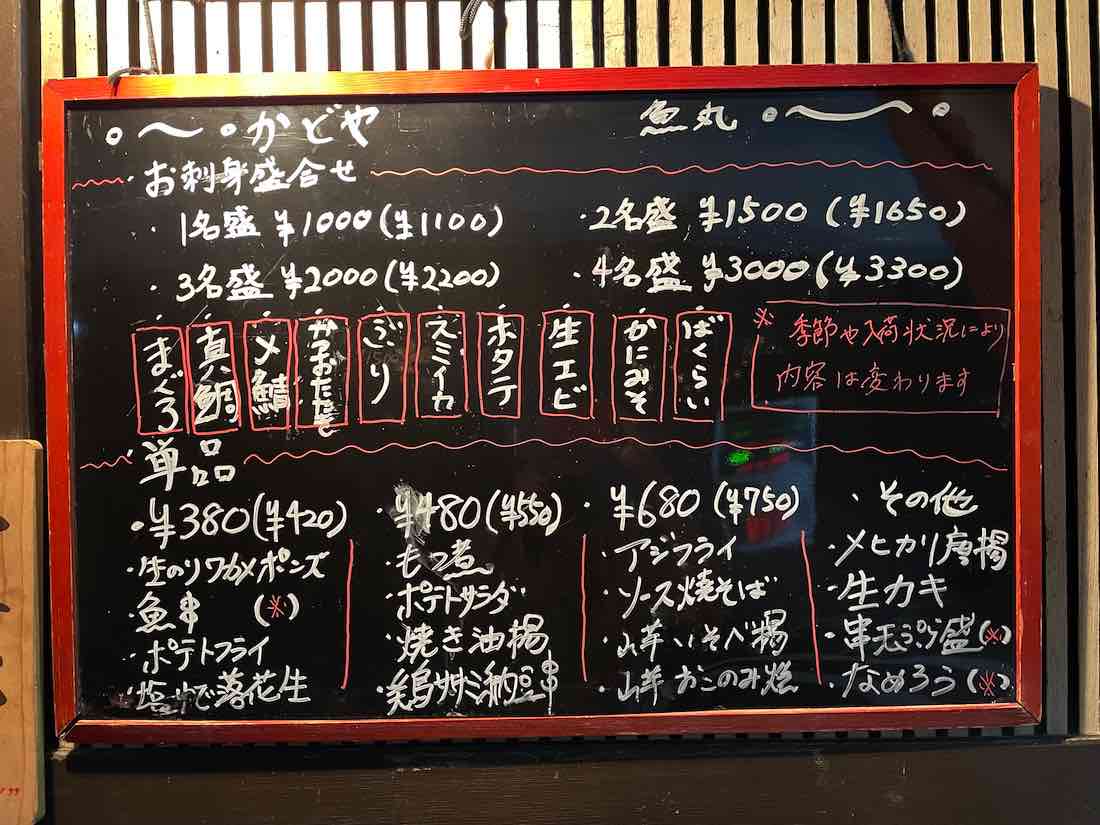 かどや 魚丸
お刺身盛合せ
・1名盛 ¥1000(¥1100) ・2名盛 ¥1500(¥1650)
・3名盛 ¥2000(¥2200) ・4名盛 ¥3000(¥3300)
・まぐろ
・真鯛
・〆鯖
・かつおたたき
・ぶり
・スミイカ
・ホタテ
・生エビ
・かにみそ
・ばくらい
※ 季節や入荷状況により
内容は変わります
・単品
・¥380(¥420)
・生のりワカメポンズ
・魚串 (※)
・ポテトフライ
・塩ゆで落花生
・¥480(¥550)
・もつ煮
・ポテトサラダ
・焼き油揚
・鶏ササミ納豆串
・¥680(¥750)
・アジフライ
・ソース焼そば
・山芋いそべ揚
・山芋おこのみ焼
・その他
・メヒカリ唐揚
・生カキ
・串天ぷら盛(※)
・なめろう(※)